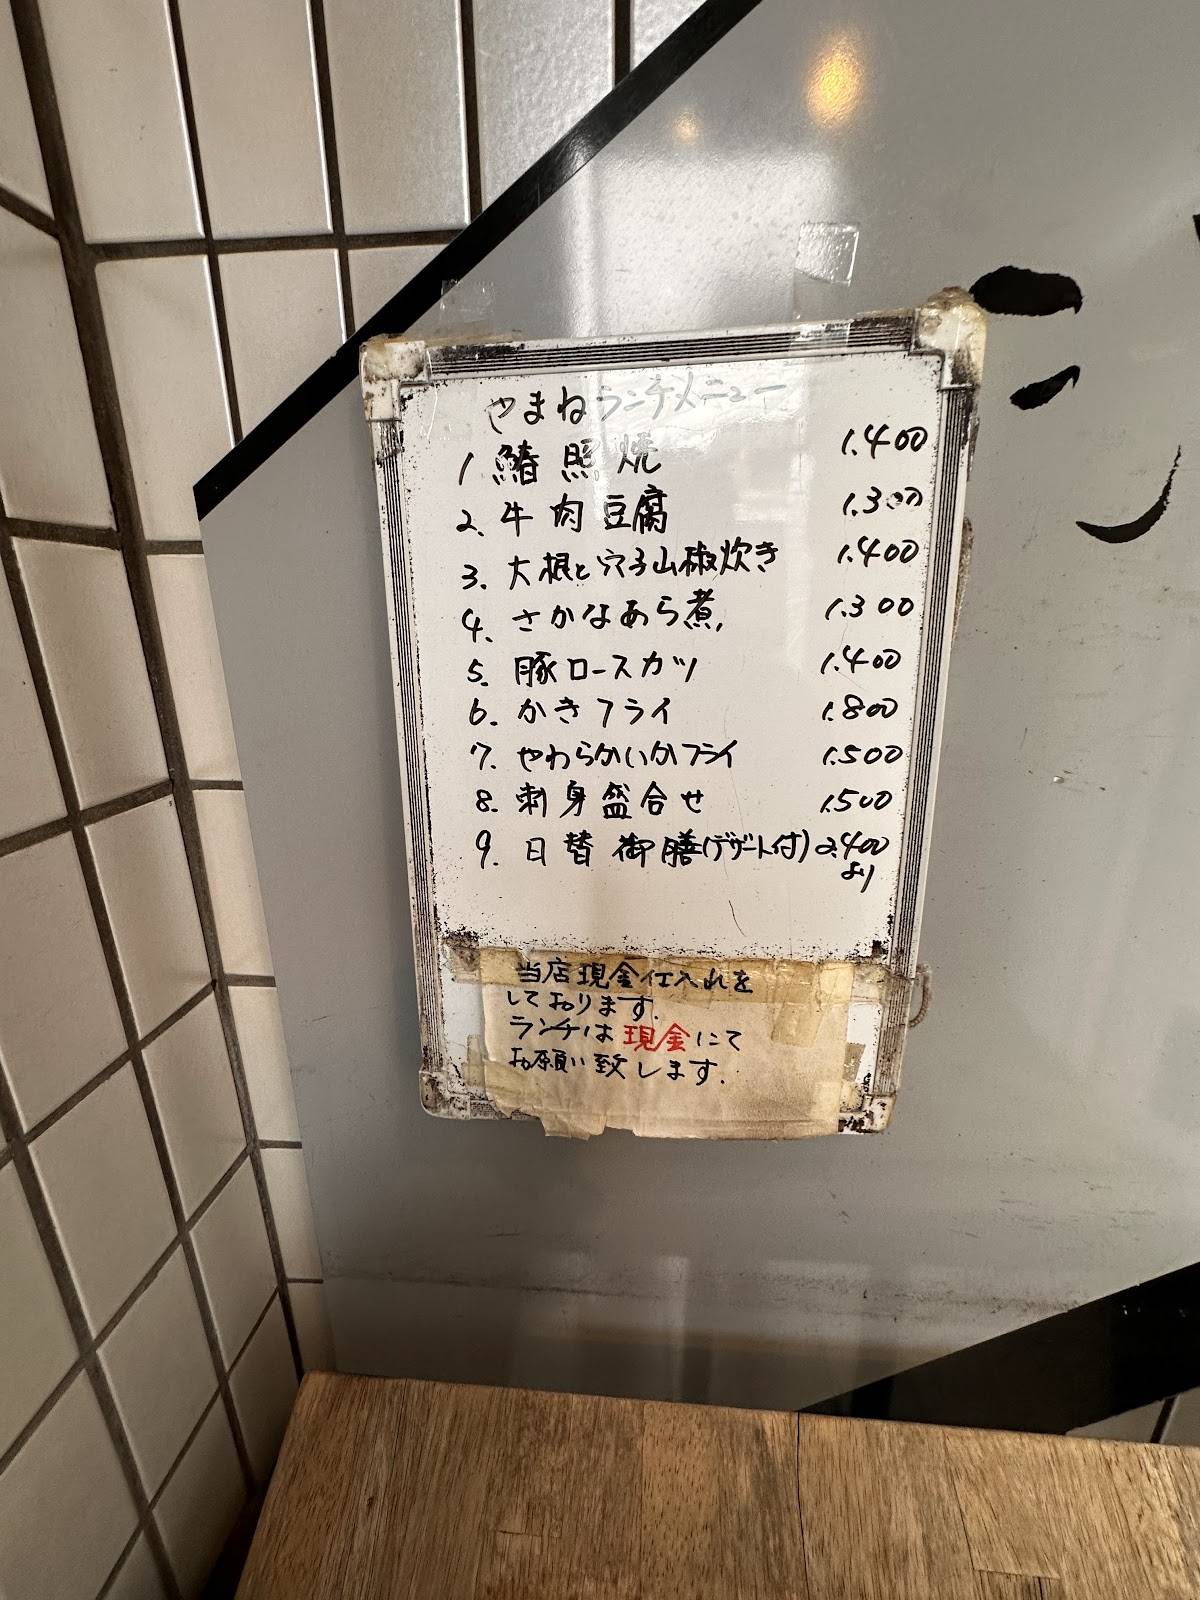 やまねランチメニュー
1 鰆照焼 1.400
2. 牛肉豆腐 1.300
3. 大根と穴子山椒炊き 1.400
4. さかなあら煮 1.300
5. 豚ロースカツ 1.400
6. かきフライ 1.800
7. やわらかいかフライ 1.500
8. 刺身盛合せ 1.500
9. 日替御膳(デザート付) 2.400
より
当店現金仕入れを
しております.
ランチは現金にて
お願い致します.